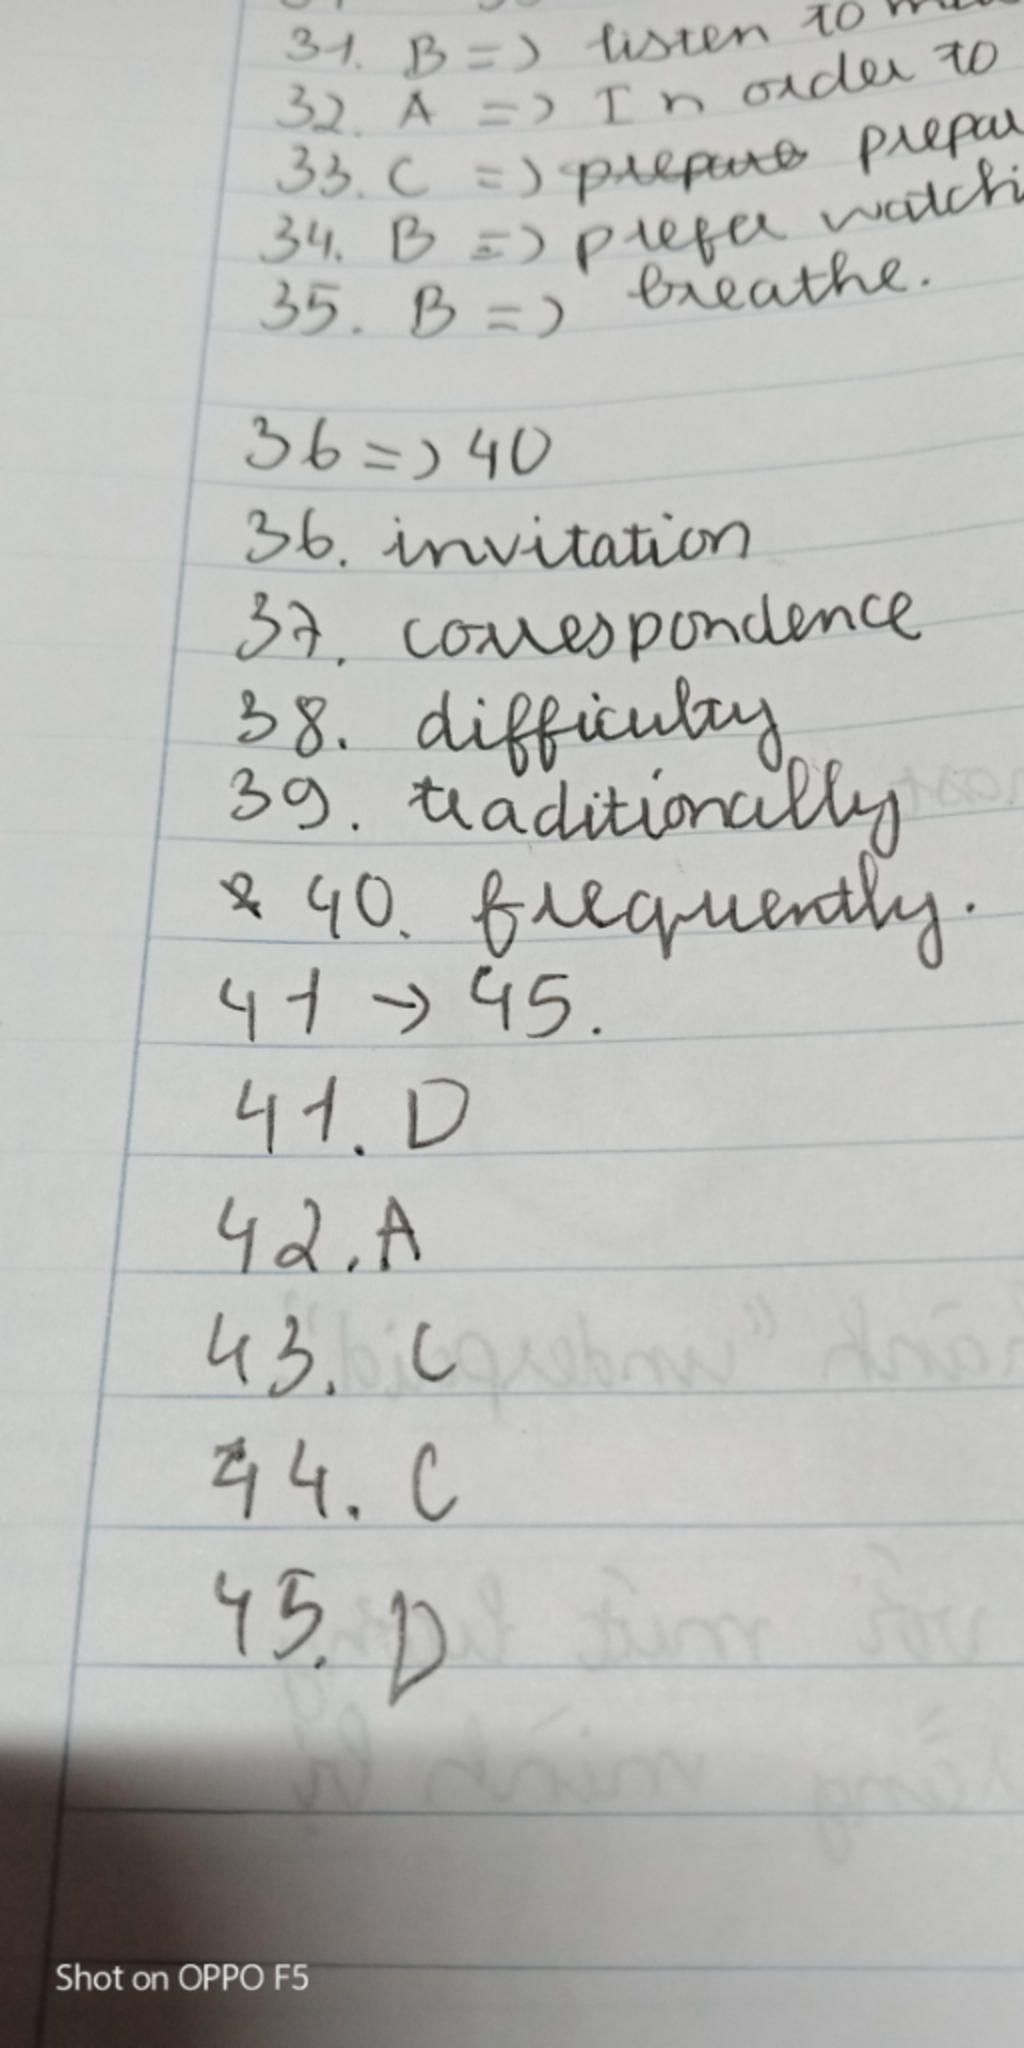 31. B => listen to
32. A => In order to
33. C =>
34. B => prefer
35. B => breathe.
36 => 40
36. invitation
37. correspondence
38. difficulty
39. traditionally
40. frequently.
41 → 45.
41. D
42. A
43. C
44. C
45. D
Shot on OPPO F5